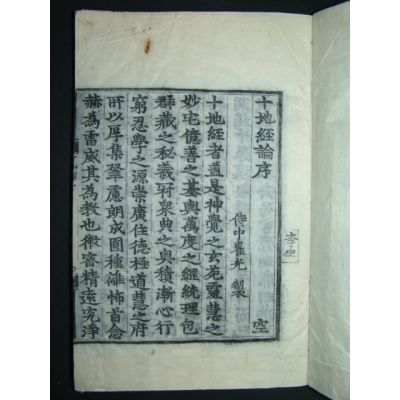 十地經論序 空
侍中崔光 製
十地經者蓋是神覺之玄苑靈慧之
妙宅億善之基輿萬度之經統理包
群藏之秘義冠衆典之奧積漸心行
窮忍學之源崇廣住德極道慧之府
所以厚集肇慮朗成圓種離怖首念
赫為雷威其為教也微密精遠究淨